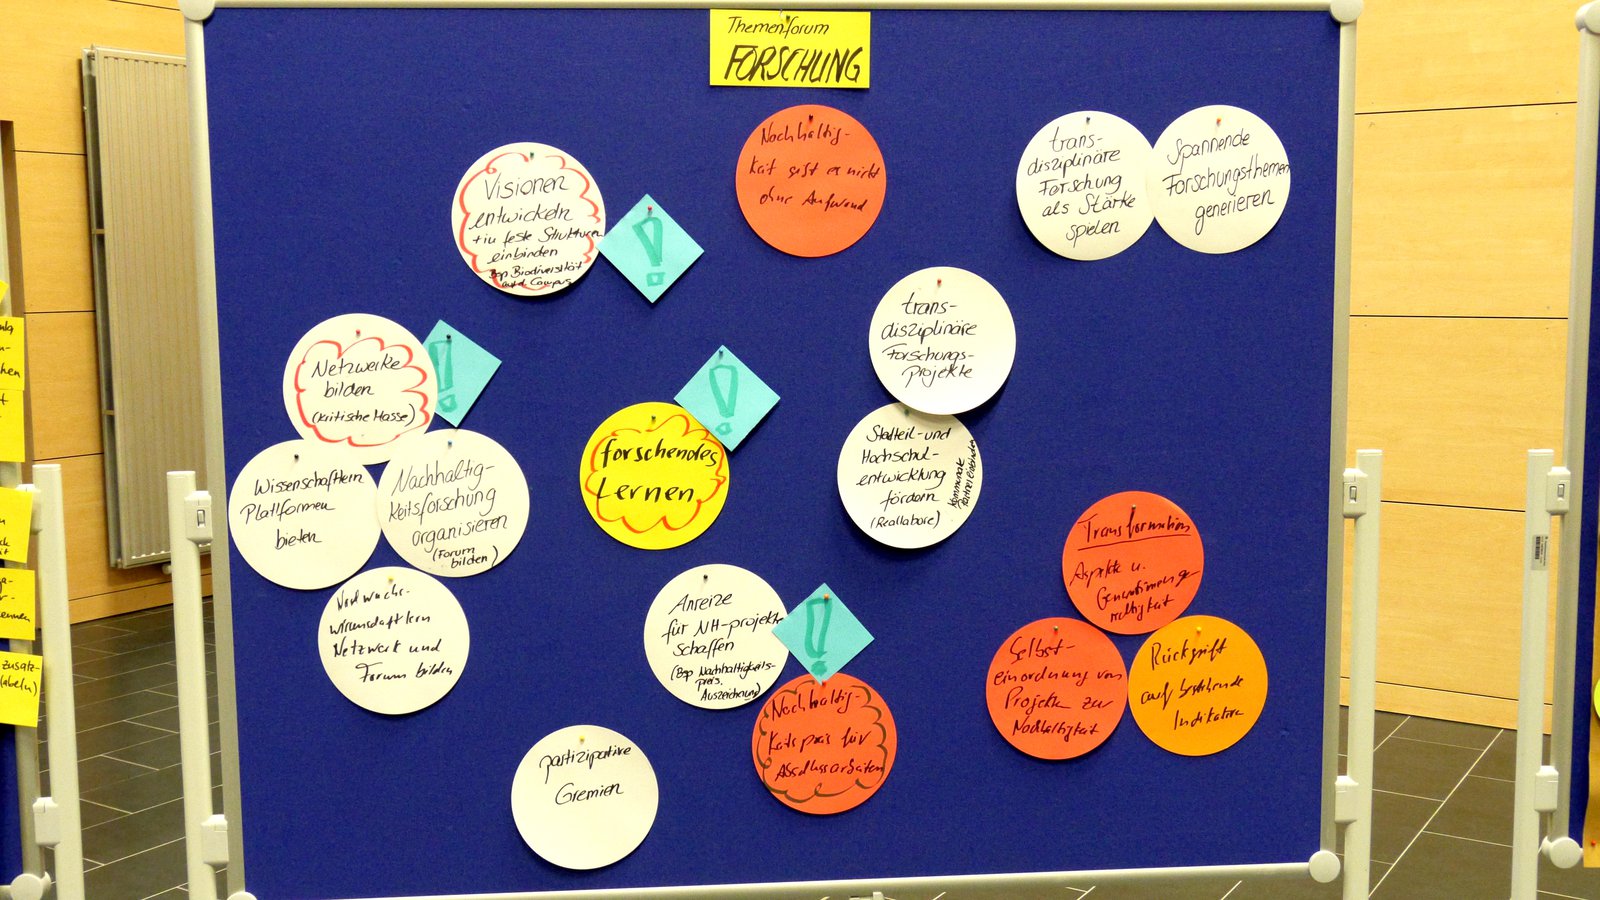 Themenforum
FORSCHUNG
Visionen
entwickeln
+ in feste Strukturen
einbinden
Bsp Biodiversität
auf d. Campus
!
Nachhaltig-
keit gibt es nicht
ohne Aufwand
trans-
disziplinäre
Forschung
als Stärke
spielen
Spannende
Forschungsthemen
generieren
trans-
disziplinäre
Forschungs-
projekte
Netzwerke
bilden
(kritische Masse)
!
Wissenschaftlern
Plattformen
bieten
Nachhaltig-
keitsforschung
organisieren
(Forum
bilden)
Netzwerk und
Forum bilden
!
forschendes
Lernen
Stadteil- und
Hochschul-
entwicklung
fördern
(Reallabore)
Kommunale
Partner einbinden
Anreize
für NH-projekte
schaffen
(Bsp Nachhaltigkeits-
preis.
Auszeichnung)
!
Nachhaltig-
keitspreis für
Abschlussarbeiten
Transformation
Aspekte u.
Selbst-
einordnung von
Projekten zur
Nachhaltigkeit
Rückgriff
auf bestehende
Indikatoren
partizipative
Gremien
zusatz-